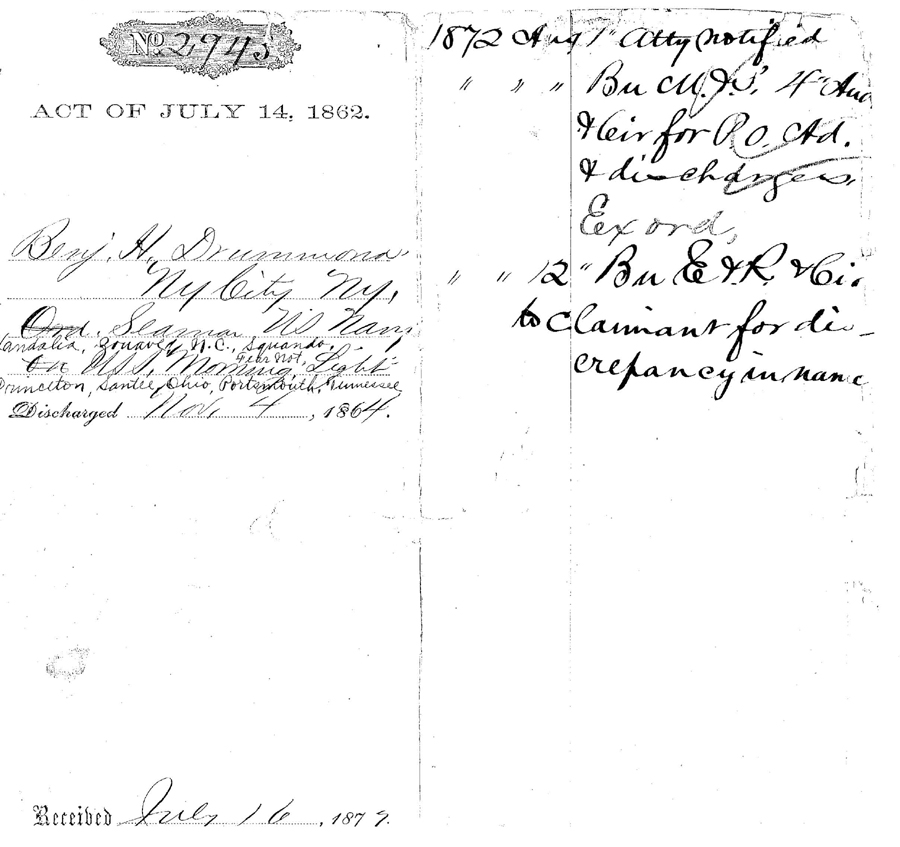 No. 2945
ACT OF JULY 14, 1862.
Benj. H. Drummond
NY City NY,
Ord. Seaman US Navy
Vandalia, Zouave, N.C., Squando,
Fear Not,
on USS, Morning Light
Princeton, Santee, Ohio, Portsmouth, Tennessee
Discharged Nov. 4, 1864.
Received July 16, 1872.
1872 Aug 1" Atty notified
" " " Bu M.&S. 4" Aud
& Cir for P.O. Ad.
& discharges.
Ex ord,
" " 12" Bu E & R. & Cir
to Claimant for dis-
crepancy in name